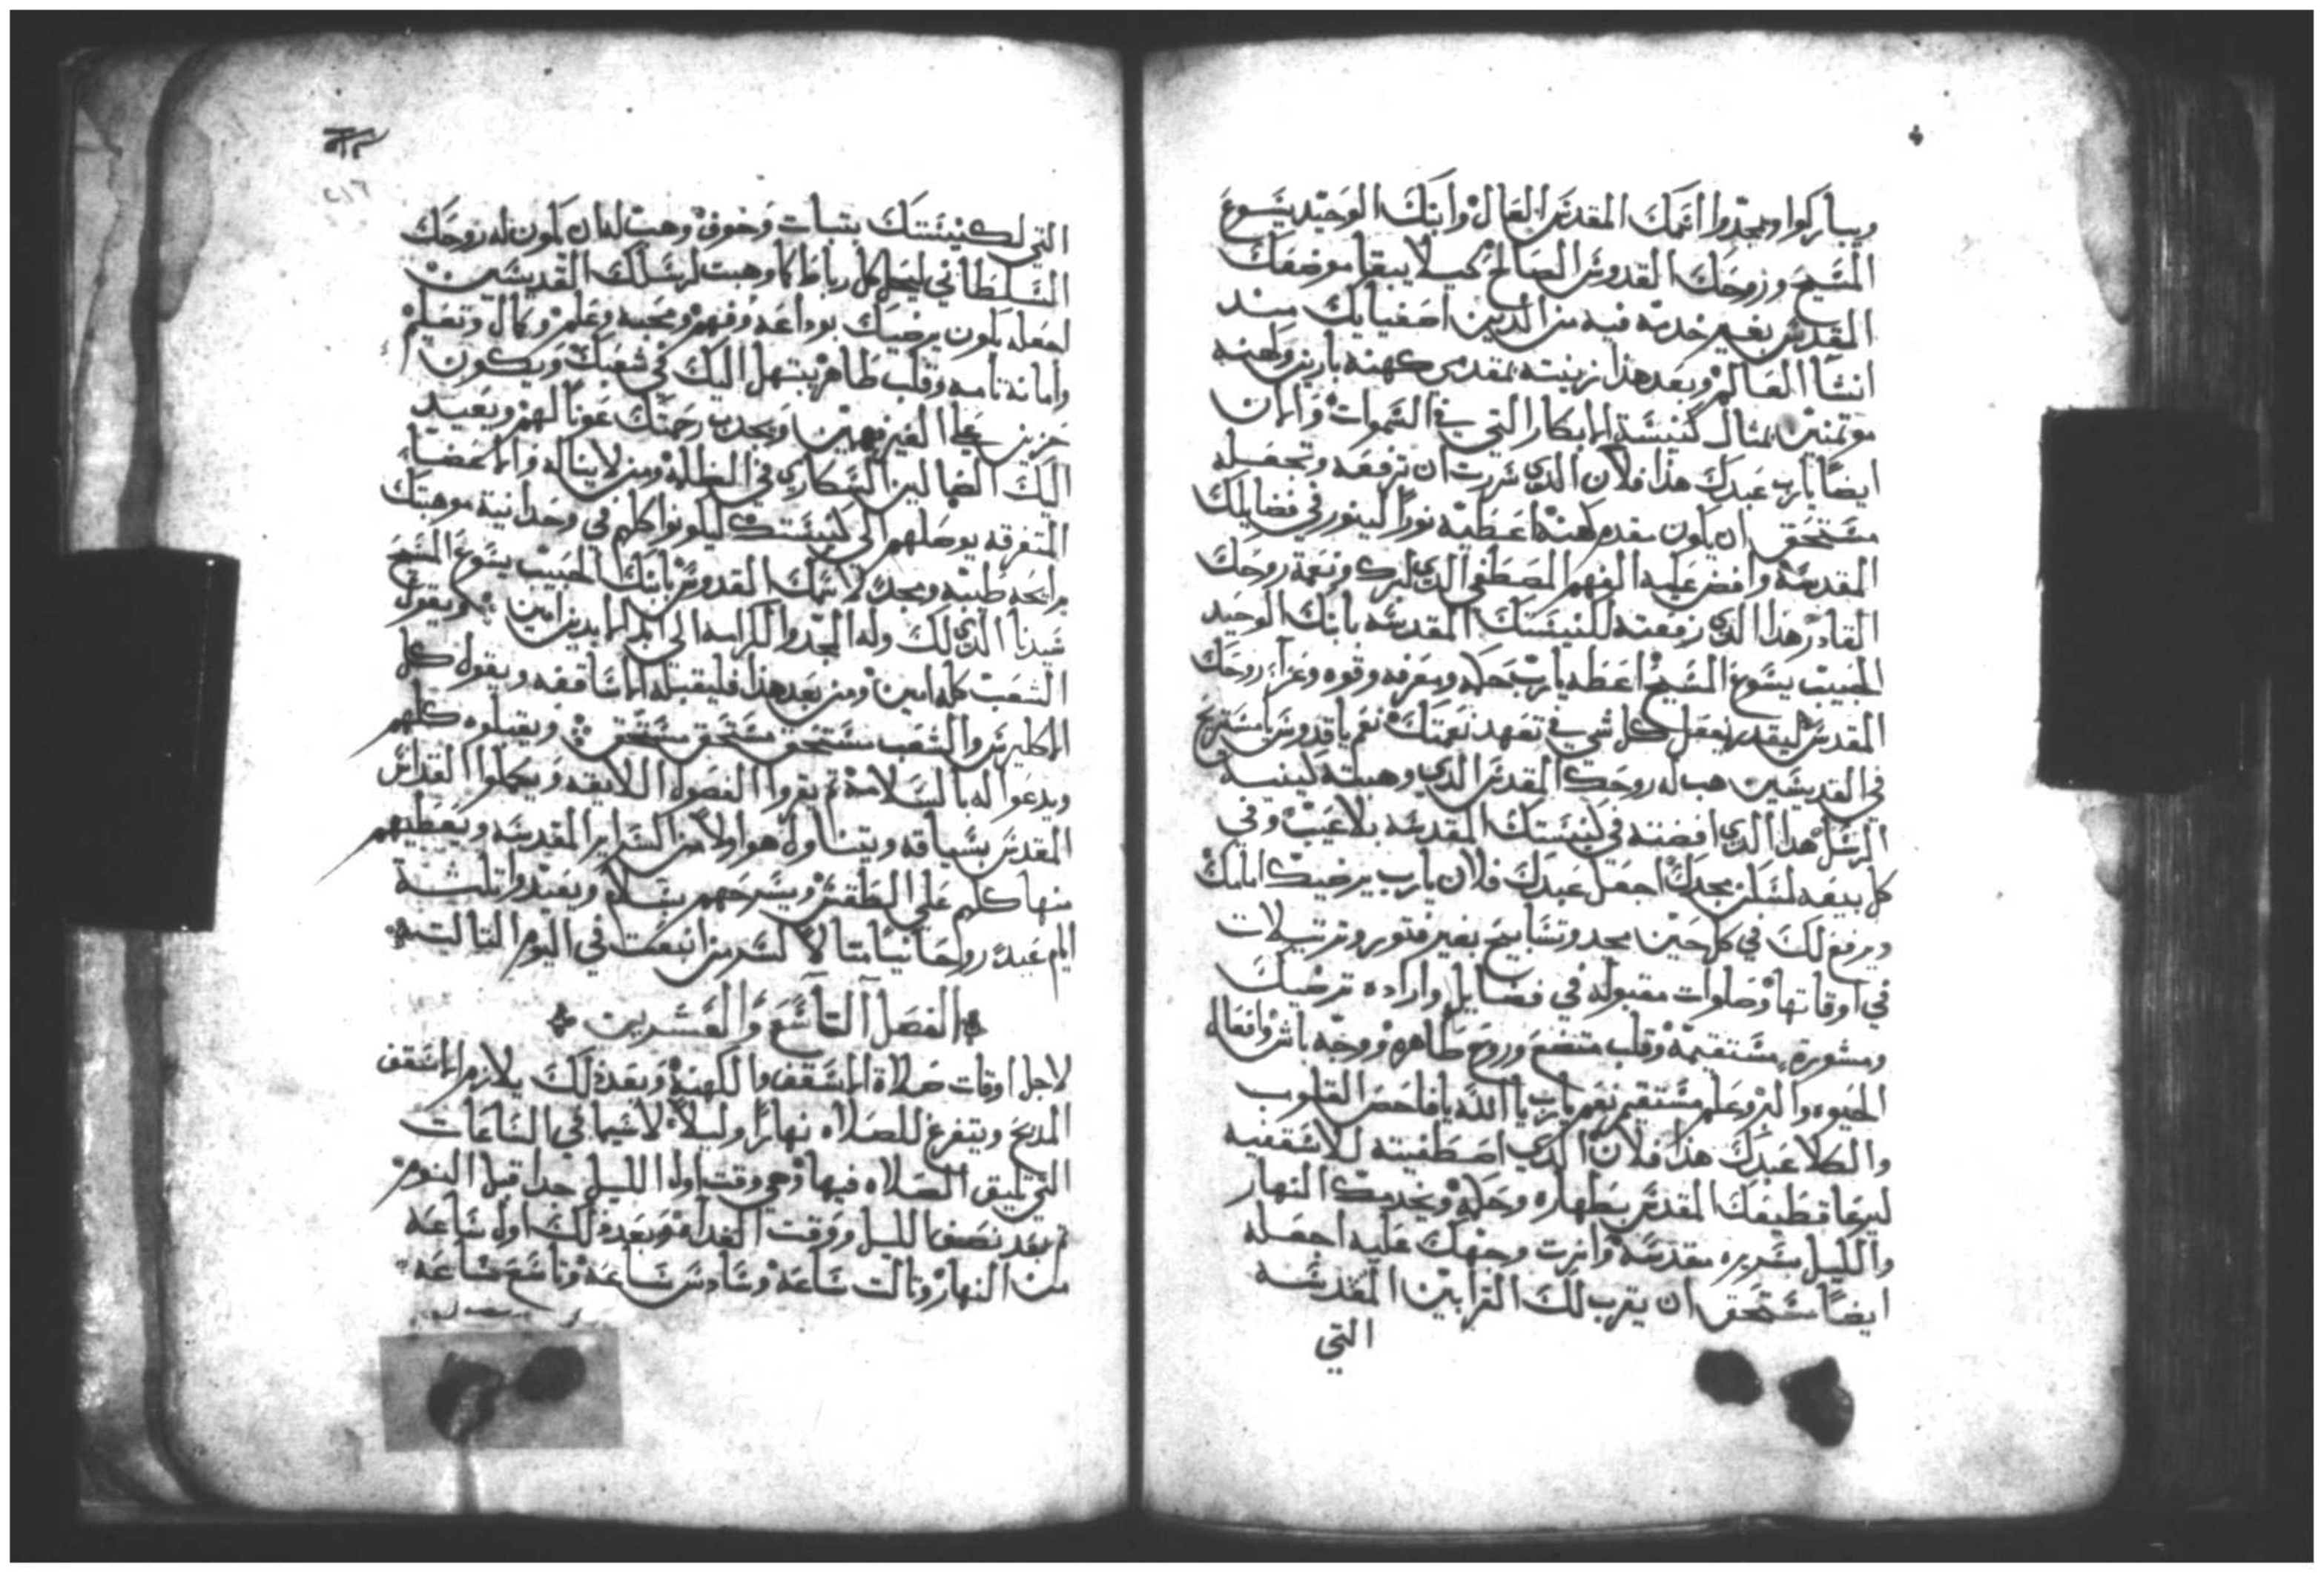 ويباركوا ويمجدوا اسمك المقدس العال وابنك الوحيد يسوع
المسيح وروحك القدوس الصالح كيلا يبقا موضعك
المقدس بغير خدمة فيه من الدين اصفيايك مند
انشا العالم وبعد هذا زينته بمقدمى كهنه بارين وكهنه
موتمنين بمثال كنيسة الابكار التي في السموات والان
ايضا يارب عبدك هذا فلان الدي سررت ان ترفعه وتجعله
مستحق ان يكون مقدم كهنة اعطيه نورا لينور في فضايلك
المقدسة وافض عليه الفهم المصطفى الدي لبرك ونعمة روحك
القادر هدا الدي رفعته لكنيستك المقدسه بابنك الوحيد
الحبيب يسوع المسيح اعطه يارب حكه ومعرفه وقوه وعزا روحك
المقدس ليقدر يفعل كل شي في تعهد نعمتك نعم يا قدوس يا مستريح
في القديسين هب له روحك المقدس الدي وهبته لكنيسة
الرسل هدا الدي افضته في كنيستك المقدسه بلا عيب وفي
كل بيعه لسكن مجدك اجعل عبدك فلان يارب يرضيك امامك
ويرفع لك في كل حين مجد وتسابيح بغير فتور وترتيلات
في اوقاتها وصلوات مقبوله في فضايل وارادة ترضيك
ومشورة مستقيمة وقلب متضع وروح طاهره ووجه باش وافعال
الحيوه والبر وعلم مستقيم نعم يارب يا الله يا فاحص القلوب
والكلا عبدك هذا فلان الدي اصطفيته للاسقفيه
ليرعا قطيعك المقدس بطهاره وحكه ويخدمك النهار
والليل بسريره مقدسة وانرت وجهك عليه اجعله
ايضا مستحق ان يقرب لك القرابين المقدسه
التي
التي لكنيستك بتبات وخوف وهب له ان يكون له روحك
السلطاني ليحل كل رباط كما وهبت لرسلك القديسين
اجعله يكون يرضيك بوداعه وفهم ومحبه وعلم وكمال وتعليم
وامانة تامه وقلب طاهر يبتهل اليك في شعبك ويكون
حزين على الغير فهمين ويجدب رحمتك عونا لهم ويعيد
اليك الضالين السكارى في الظلمة ومن لا يناله والاعضا
المتفرقه يوصلهم الى كنيستك ليكونوا كلهم في وحدانية موهبتك
برايحه طيبه ومجد لاسمك القدوس بابنك الحبيب يسوع المسيح
سيدنا الدي لك وله المجد والكرامه الى ابد الابدين امين ويقول
الشعب كله امين ومن بعد هذا فليقبله الاساقفه ويقول كل
الاكليرس والشعب مستحق مستحق مستحق ويقبلوه كلهم
ويدعوا له بالسلامة ثم يقروا الفصول اللايقه ويكملوا القداس
المقدس بسياقه ويتناول هو اولا من السراير المقدسه ويعطيهم
منها كلهم على الطقس ويسرحهم بسلام ويعيدوا تلتة
ايام عيدا روحانيا متالا لسر من انبعت في اليوم التالت
الفصل التاسع والعشرين
لاجل اوقات صلاة الاسقف والكهنة وبعد ذلك يلازم الاسقف
المدبح ويتفرغ للصلاه نهارا وليلا لا سيما في الساعات
التي تليق الصلاه فيها وهي وقت اول الليل جدا قبل النوم
ثم بعد نصف الليل ووقت الغداة وبعد ذلك اول ساعه
من النهار وتالت ساعة وسادس ساعة وتاسع ساعه